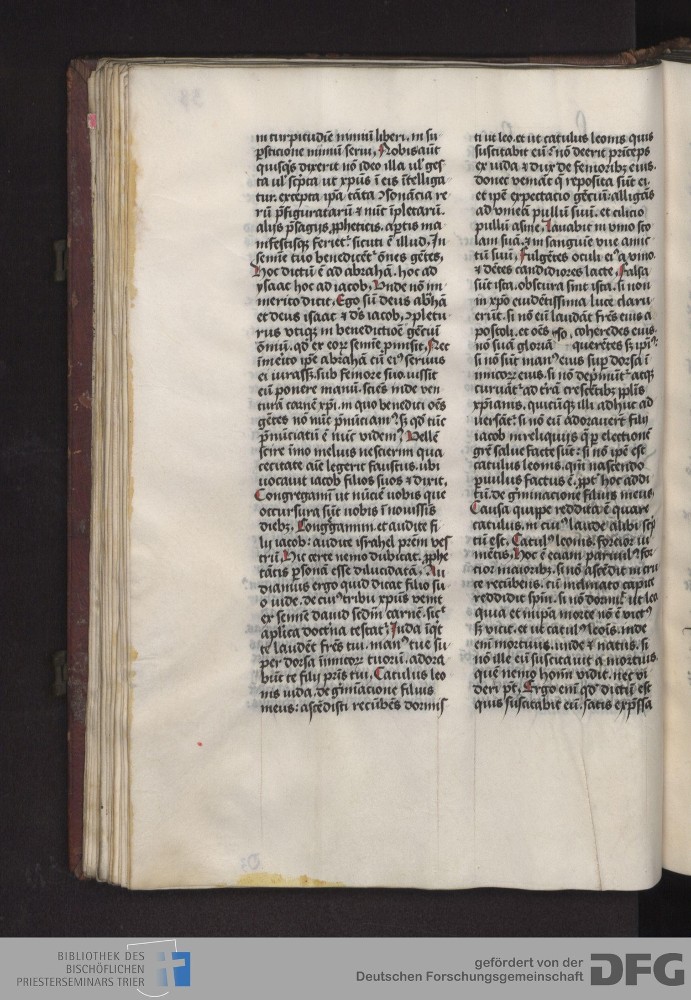 in turpitudīe nimiū liberi. in su
ꝑsticione nimiū serui. Nobis aūt
quisq̄s dixerit nō ideo illa ul' ges
ta ul' sc̄pta ut xp̄us ī eis ītelliga
tur. excepta ip̄a tāta ꝯsonācia re
rū p̄figuratarū ⁊ nūc īpletarū.
alijs p̄sagijs ꝓpheticis. aꝑtis ma
nifestisq; feriet᷑ sicuti ē illud. In
semīe tuo benedicēt᷑ ōnes gētes.
Hoc dictū ē ad abrahā. hoc ad
ysaac hoc ad iacob. Unde nō im
merito dicit. Ego sū deus abhā
et deus isaac ⁊ dꝰs iacob. ꝯpletu
rus utiq; in benedictioē gēciū
ōniū. qd̄ ex eoꝝ semīe ꝓmisit. Nec
īmerito ip̄e abrahā cū ei⁹ seruus
ei iurass; sub femore suo. iussit
eū ponere manū. sciēs inde ven
turā carnē xp̄i. in quo benedici oēs
gētes nō nūc p̄nūciam⁹. s; qd̄ tūc
p̄nūciatū ē nūc videm⁹. Vellē
scire īmo melius nescierim qua
cecitate aīe legerit faustus. ubi
uocauit iacob filios suos ⁊ dixit.
Congregamī ut nūciē uobis que
occursura sūt uobis ī nouissīs
dieb;. Congregamini. et audite fi
lij iacob: audite israhel prēm ves
trū. Hic certe nemo dubitat. ꝓphe
tātis ꝑsonā esse dilucidatā. Au
diamus ergo quid dicat filio su
o iude. de cui⁹ tribu xp̄us venit
ex semīe dauid scd̄m carnē. sic᷑
aplīca doctrīa testat᷑. Iuda īq̄t
te laudēt frēs tui. man⁹ tue su
per dorsa īimicoꝝ tuorū. adora
būt te filij pr̄is tui. Catulus leo
nis iuda. de ḡminacione filius
meus: ascēdisti recūbēs dormis
ti ut leo. et ut catulus leonis quis
suscitabit eū: nō deerit prīceps
ex iuda ⁊ dux de femorib; eius.
donec veniāt q̄ reposita sūt ei.
et ip̄e expectacio gēciū: alligās
ad vineā pullū suū. et cilicio
pullū asine. Lauabit in vino sto
lam suā. ⁊ in sanguīe vue amic
tū suū. Fulgētes oculi ei⁹ a vino.
⁊ dētes candidiores lacte. Falsa
sūt ista. obscura sint ista. si non
in xp̄o euidētissima luce claru
erūt. si nō eū laudāt frēs eius a
postoli. et oēs coheredes eius.
nō suā gloriā querētes s; ip̄i⁹:
si nō sūt man⁹ eius suꝑ dorsa ī
imicoꝝ eius. si nō dep̄mūt᷑ atq;
curuāt᷑ ad t̄rā crescētib; pplīs
xp̄ianis. quicūq; illi adhuc ad
uersāt᷑: si nō eū adorauerūt filij
iacob in reliquijs q̄ ꝑ electionē
grē salue facte sūt: si nō ip̄e est
catulus leonis. qm̄ nascendo
ꝑuulus factus ē. ꝓpt᷑ hoc addi
tū. de ḡminacione filius meus.
Causa quippe reddita ē quare
catulus. in cui⁹ laude alibi sc̄p
tū est. Catul⁹ leonis. forcior iu
mētis. Hoc ē eciam paruul⁹ for
cior maiorib;. si nō ascēdit in cru
ce recūbens. cū inclinato capite
reddidit spm̄. si nō dormit ut leo
quia et in ip̄a morte nō ē vict⁹
s; vicit. et ut catul⁹ leōis. inde
enī mortuus. unde ⁊ natus. si
nō ille eū suscitauit a mortuis.
quē nemo hoīm vidit. nec vi
deri pt̄. Ergo enī qd̄ dictū est
quis suscitabit eū. satis exp̄ssa
BIBLIOTHEK DES
BISCHÖFLICHEN
PRIESTERSEMINARS TRIER
gefördert von der
Deutschen Forschungsgemeinschaft
DFG